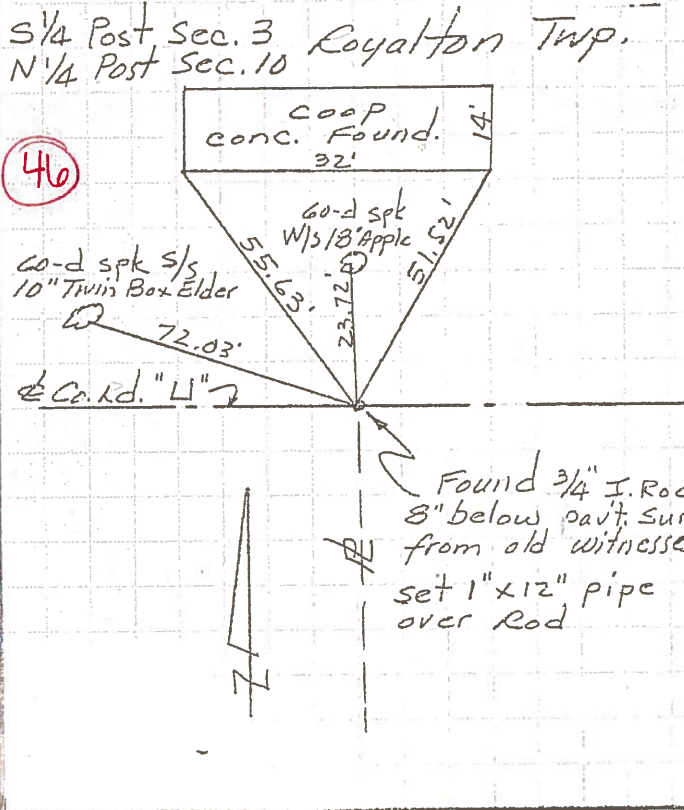 S 1/4 Post Sec. 3 Royalton Twp.
N 1/4 Post Sec. 10
COOP
conc. Found.
14'
32'
46
60-d spk
W/S 18" Apple
55.63'
51.52'
23.72'
60-d spk S/S
10" Twin Box Elder
72.03'
℄ Co. Rd. "U"
Found 3/4" I. Rod
8" below pav't. Sur
from old witnesse
set 1" x 12" pipe
over Rod
N